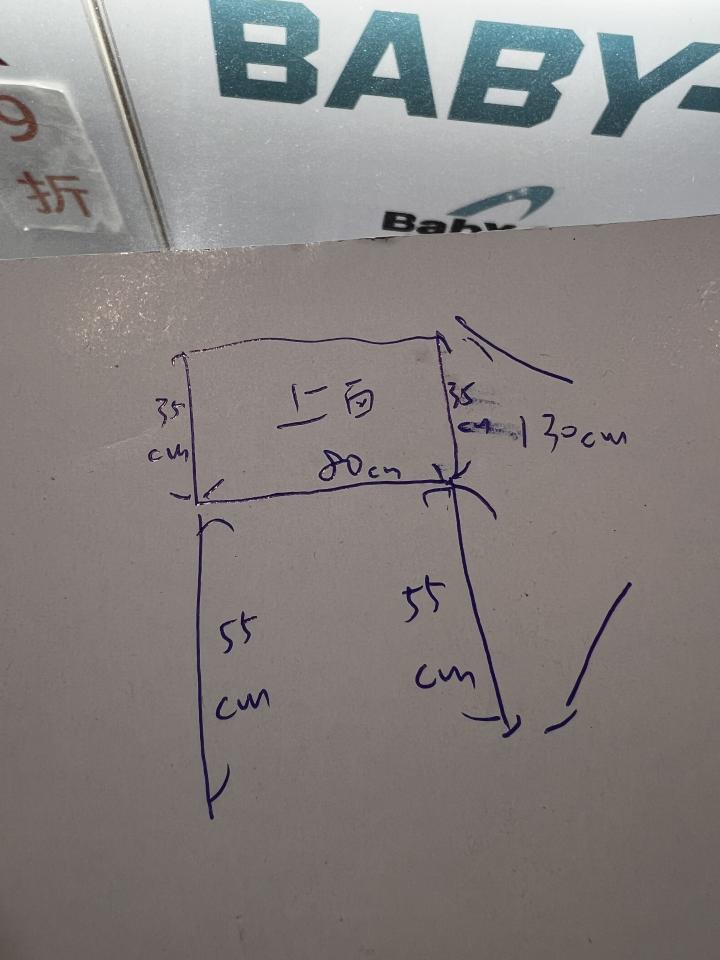 BABY-
9
折
Baby
上面
35
cm
35
cm
130cm
80cm
55
cm
55
cm